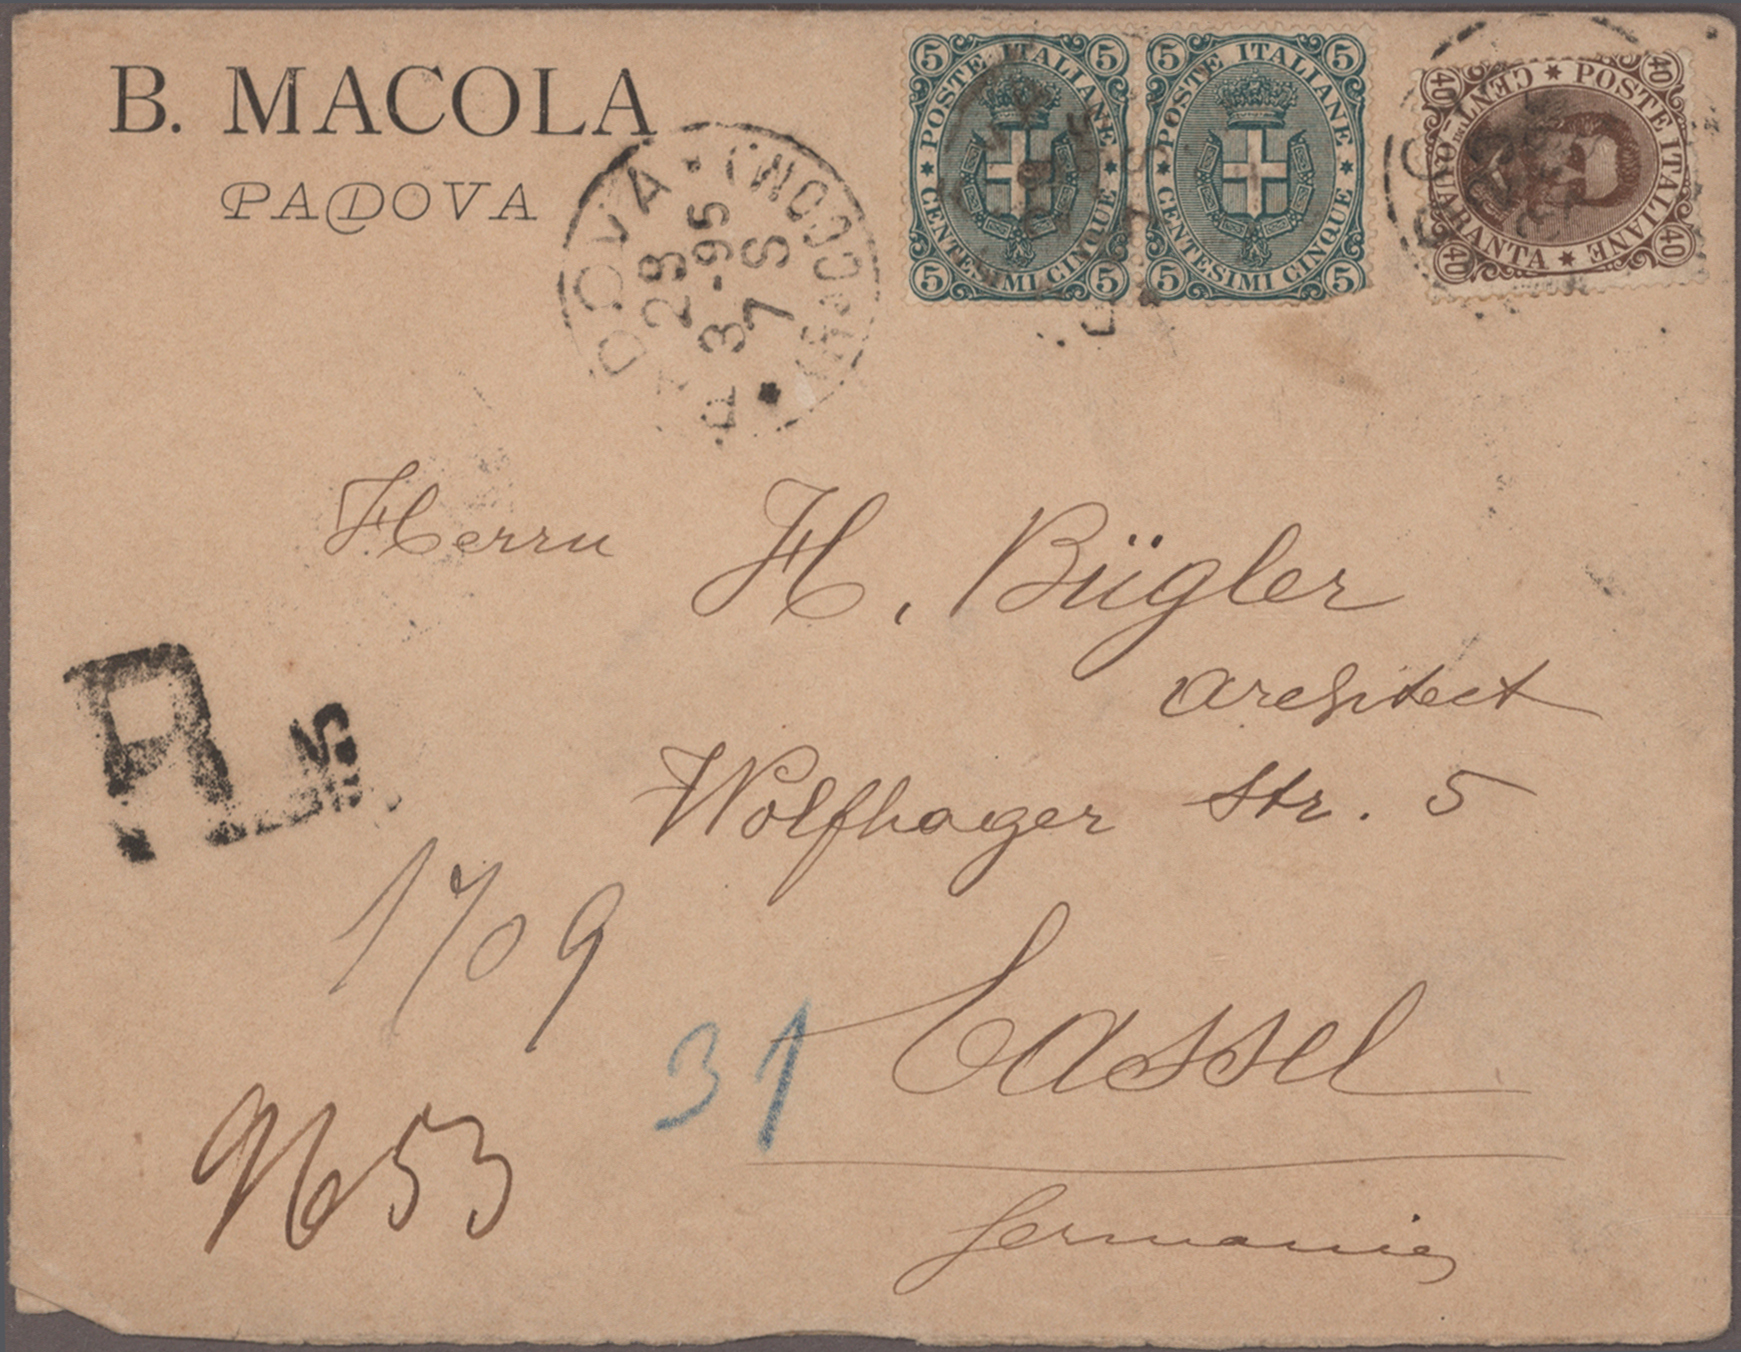 B. MACOLA
PADOVA
PADOVA
(RACCOM)
28
3 - 95
7 S
5 5
POSTE ITALIANE
CENTESIMI CINQUE
5 5
5 5
POSTE ITALIANE
CENTESIMI CINQUE
5 5
40 40
POSTE ITALIANE
CENT.MI QUARANTA
40 40
Herrn H. Bügler
Architect
Wolfhager Str. 5
Cassel
Germania
R
1709
31
9653